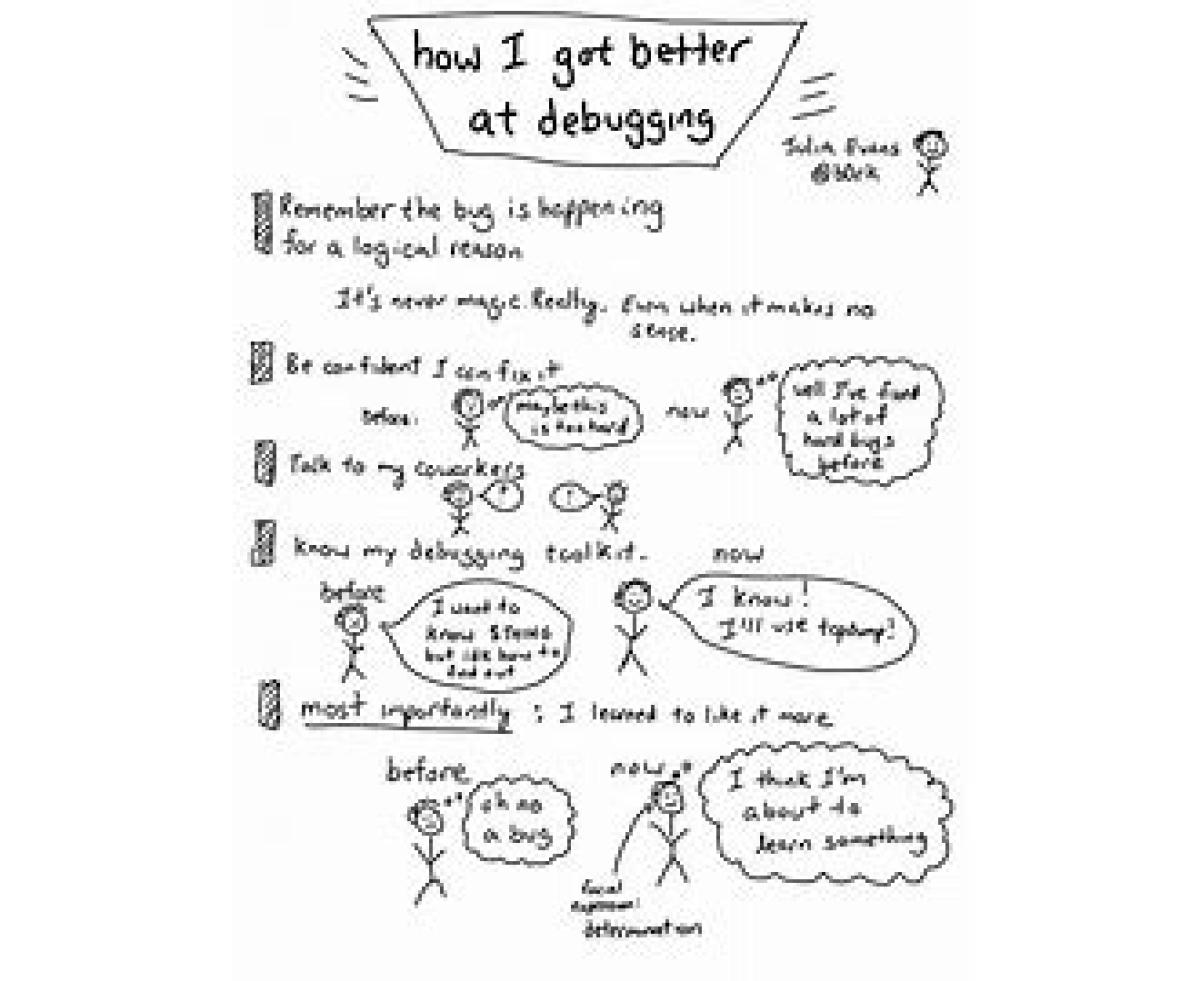 how I got better
at debugging
Julia Evans
@b0rk
Remember the bug is happening
for a logical reason
It's never magic. Really. Even when it makes no
sense.
Be confident I can fix it
before:
maybe this
is too hard
now
well I've fixed
a lot of
hard bugs
before
Talk to my coworkers
know my debugging toolkit.
before
I want to
know
but idk how to
find out
now
I know!
I'll use tcpdump!
most importantly : I learned to like it more
before
oh no
a bug
now
I think I'm
about to
learn something
facial
expression:
determination